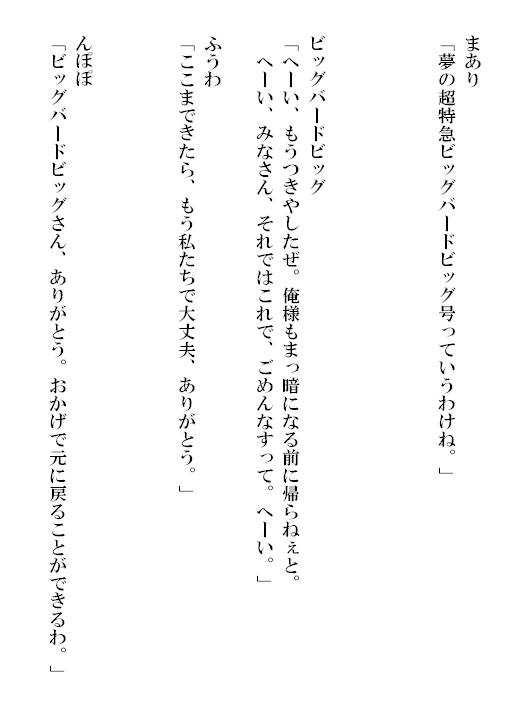 まあり
「夢の超特急ビッグバードビッグ号っていうわけね。」
ビッグバードビッグ
「へーい、もうつきやしたぜ。俺様もまっ暗になる前に帰らねぇと。
へーい、みなさん、それではこれで、ごめんなすって。へーい。」
ふうわ
「ここまできたら、もう私たちで大丈夫、ありがとう。」
んぽぽ
「ビッグバードビッグさん、ありがとう。おかげで元に戻ることができるわ。」